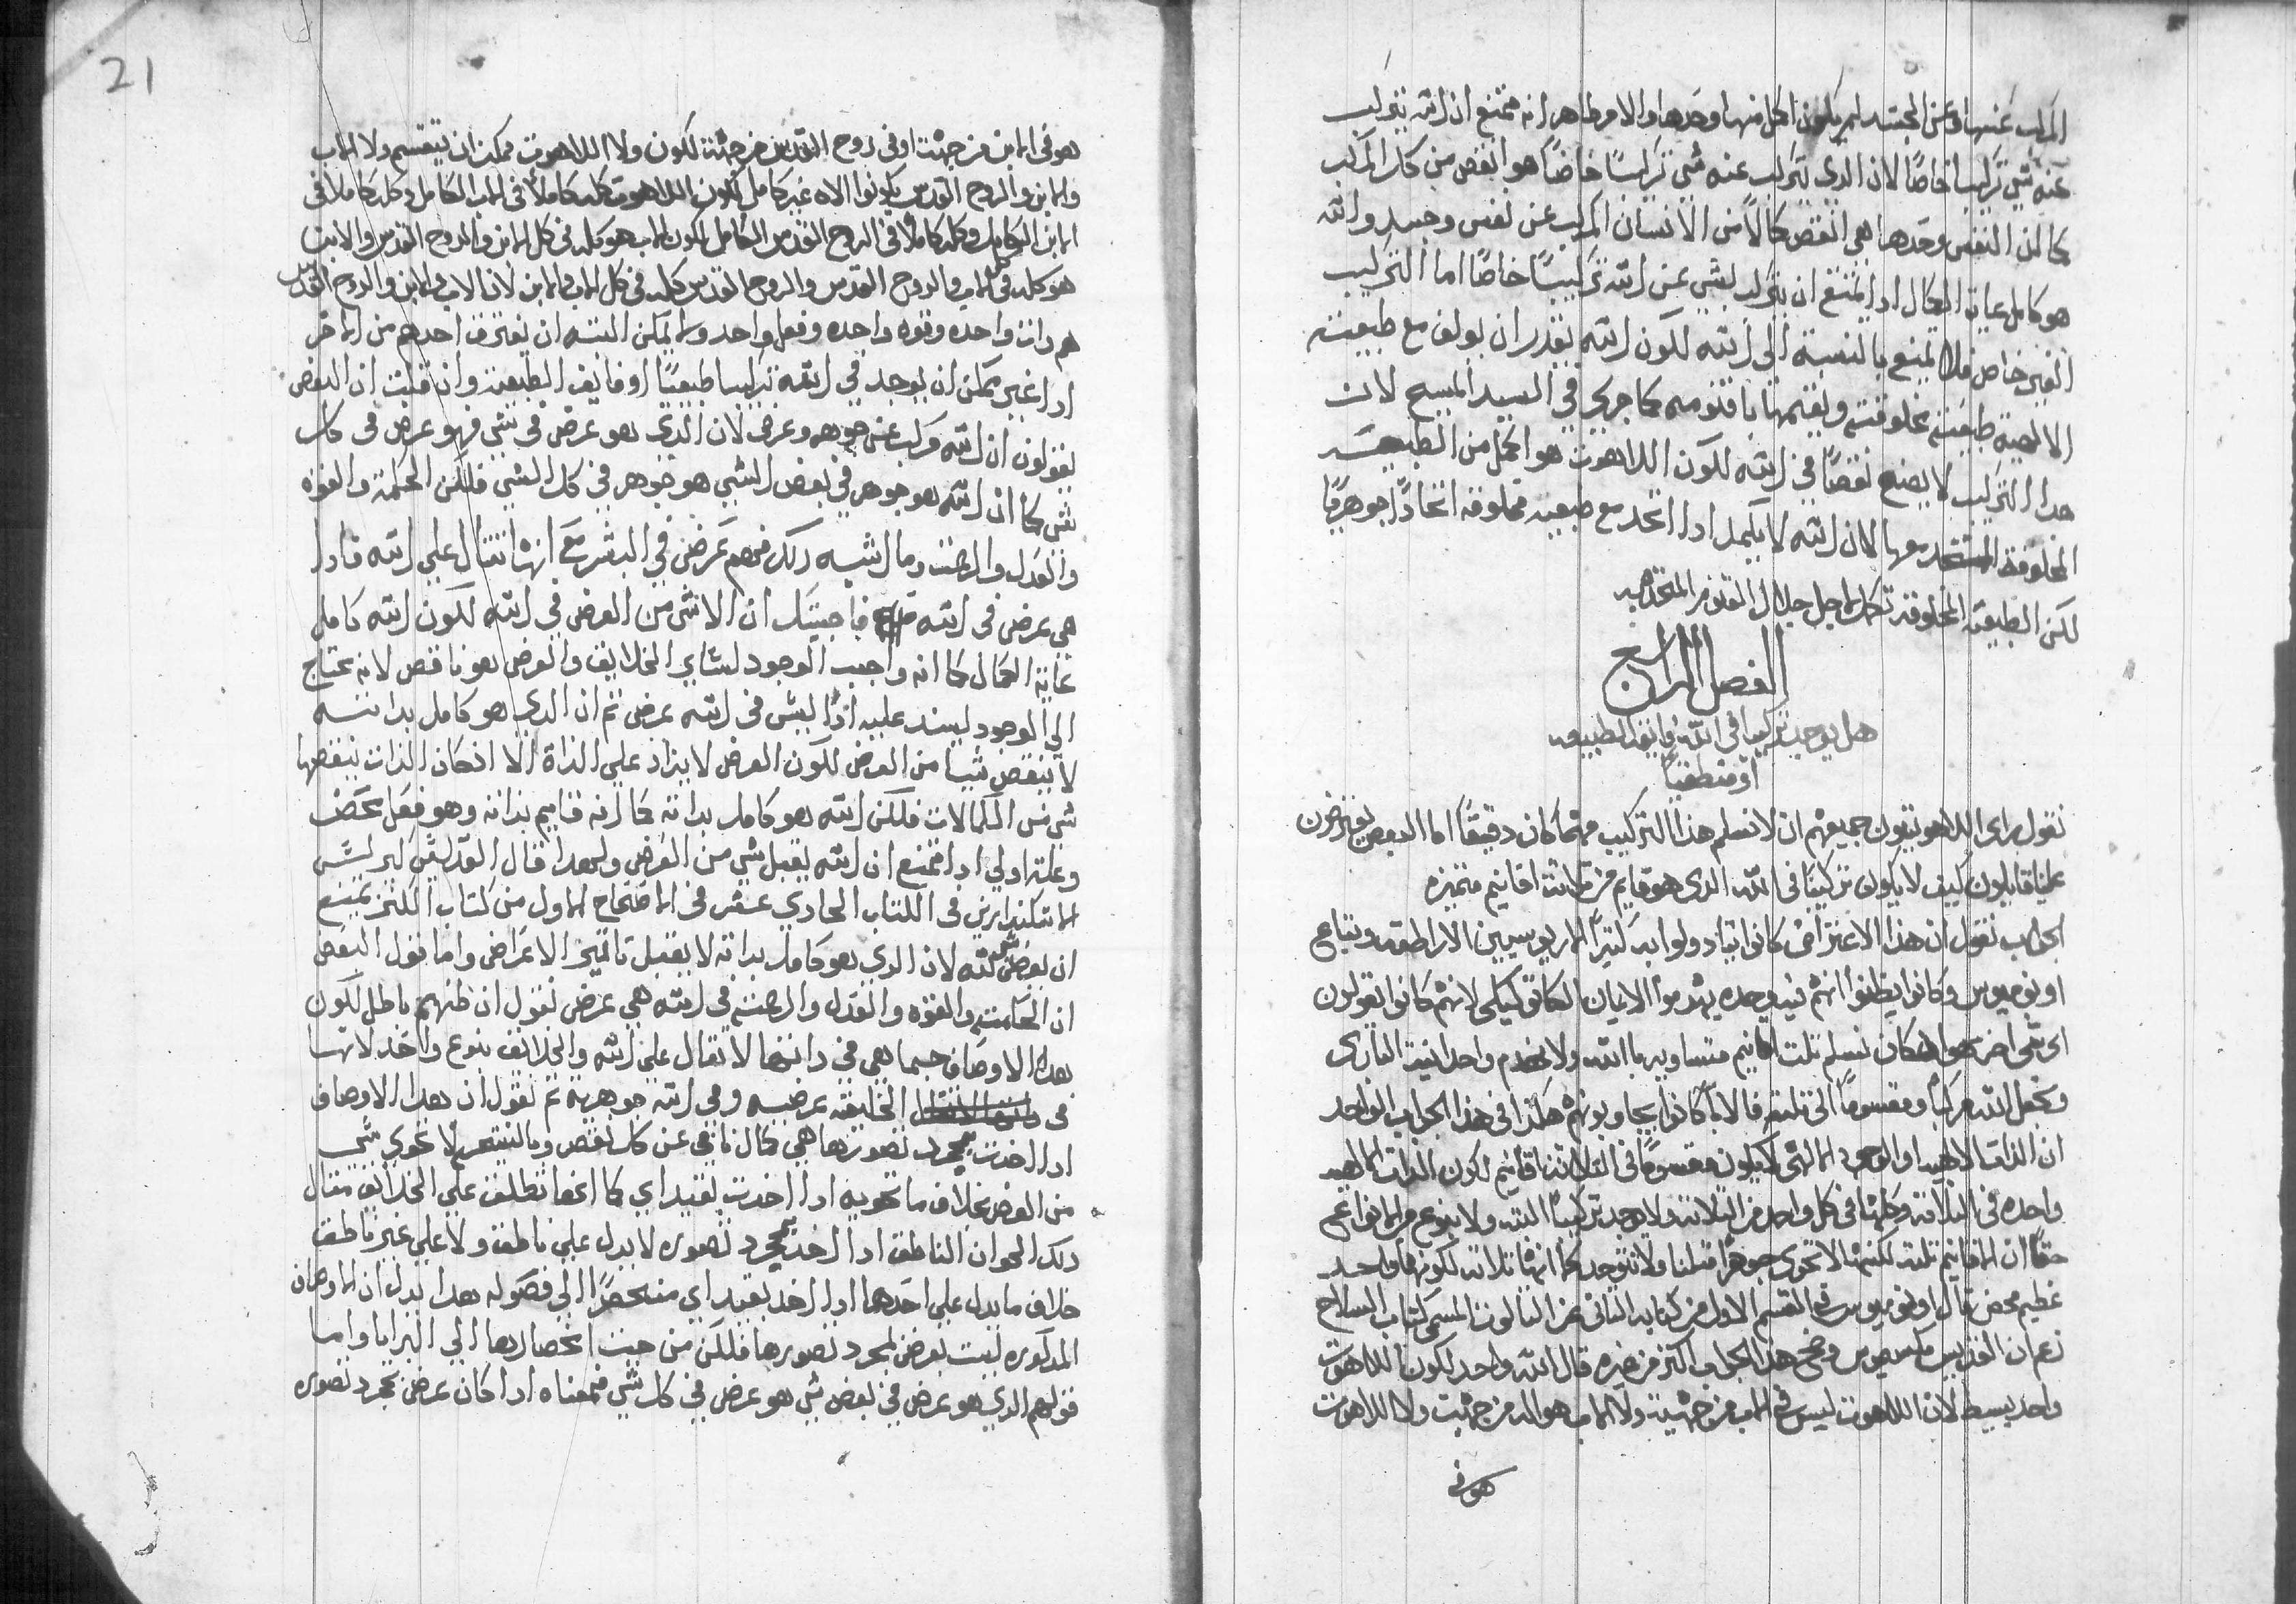 المركب عنها وعن الجسد لم يكون اكمل منها وحدها والامر ظاهر انه ممتنع ان الله يتركب
عنه شي تركيبًا خاصًا لان الدي يتركب عنه شي تركيبًا خاصًا هو انقص من كل المركب
كما ان النفس وحدها هي انقص كمالاً من الانسان المركب عن نفس وجسد والله
هو كامل غاية الكمال ادا يمتنع ان يتركب لشي عن الله تركيبًا خاصًا اما التركيب
الغير خاص فلا يمنع بالنسبة الى الله لكون الله يقدر ان يولف مع طبيعته
الالهية طبيعة مخلوقة ويقيمها باقنومه كما جرى في السيد المسيح لان
هدا التركيب لا يصنع نقصًا في الله لكون اللاهوت هو اكمل من الطبيعة
المخلوقة المتحد معها لان الله لا يكمل ادا اتحد مع طبيعة مخلوقة اتحادًا جوهريًا
لكن الطبيعة المخلوقة تكمل لاجل جلال القنوم المتحد به
الفصل الرابع
هل يوجد تركيبا في الله فايق الطبيعه
او منطقيًا
نقول براى اللاهوتيون جميعهم ان لا نسلم هذا التركيب مهما كان دقيقًا اما البعض يعترضون
علينا قايلون كيف لا يكون تركيبًا في الله الدى هو قايم من ثلاثة اقانيم متميزه
الجواب نقول ان هذا الاعتراض كانوا يتادولوا به كثيرًا الاريوسيين الاراطقه وتباع
اونوميوس وكانوا يظنوا انهم فيه وحده يهدموا الايمان الكاتوليكى لانهم كانوا يقولون
اى شى اخر هوا كان نسلم تلت اقانيم متساويه باالله ولا نهدم واحدانية البارى
ونجعل الله مركبًا ومقسومًا الى تلته فالابا كانوا يجاوبونهم هكذا في هذا الجواب الواحد
ان الذات الالهيه او الوجود الالهى لا يكون مقسومًا في الثلاثة اقانيم لكون الذات الالهيه
واحده في الثلاثة وكلها في كل واحد من الثلاثة ولا يوجد تركيبًا البته ولا بنوع من الانواع نعم
حقًا ان الاقانيم تلته لكنها لا تحوى جوهرًا مثلنا ولا تتوحد كما انها ثلاثه لكونها واحد
عظيم محض قال اونوميوس في القسم الاول من كتابه الثانى عن الثالوث المسمى كتاب السلاح
زعم ان القديس مكسيموس وضح هذا الجواب اكثر من غيره قال الله واحد لكون اللاهوت
واحد بسيط لان اللاهوت ليس في الاب من جهة ولا الاب هو اله من جهة ولا اللاهوت
هو في
21
هو في الابن من جهة او في روح القدس من جهة لكون ولا اللاهوت ممكن ان ينقسم ولا الاب
والابن والروح القدس يكونوا الاه غير كامل لكون اللاهوت كله كاملاً في الاب الكامل وكله كاملاً في
الابن الكامل وكله كاملاً في الروح القدس الكامل لكون الاب هو كله في كل الابن والروح القدس والابن
هو كله في كل الاب والروح القدس والروح القدس كله في كل الاب والابن لان الاب والابن والروح القدس
هم دات واحده وقوه واحده وفعل واحد ولا يمكن البته ان يفترق احدهم من الاخر
ادا غير ممكن ان يوجد في الله تركيبا طبيعيًا او فايق الطبيعة وان قلت ان البعض
يقولون ان الله مركب عن جوهر وعرض لان الدي هو عرض في شي فهو عرض في كل
شي كما ان الله هو جوهر في بعض الشي هو جوهر في كل الشي فلكن الحكمة والقوة
والعدل والرحمة وما اشبه دلك فهم عرض في البشر مع انها تقال على الله فادا
هي عرض في الله فاجيبك ان لا شي من العرض في الله لكون الله كامل
غاية الكمال كما انه واجب الوجود لساير الخلايق والعرض هو ناقص لانه يحتاج
الي الوجود ليسند عليه اذًا ليس في الله عرض ثم ان الدي هو كامل بداته
لا ينقص شيا من العرض لكون العرض لا يزاد على الذاة الا اذ كان الذات ينقصها
شي من الكمالات فلكن الله هو كامل بداته كما انه قايم بداته وهو فعل محض
وعلة اولي ادا ممتنع ان الله يقبل شي من العرض ولهدا قال القديس كيرلس
الاسكندري في الكتاب الحادي عشر في الافتتاح الاول من كتاب الكنز يمتنع
ان يعرض شي لله لان الدي هو كامل بداته لا يقبل تاثير الاعراض واما قول البعض
ان الحكمة والقوه والعدل والرحمة في الله هي عرض نقول ان ظنهم باطل لكون
هده الاوصاف حسبما هي في داتها لا تقال على الله والخلايق بنوع واحد لانها
في الخليقه عرضيه وفي الله جوهرية ثم نقول ان هدا الاوصاف
ادا اخدت بمجرد تصورها هي كمال نافي عن كل نقص وبالنتيجه لا تحوي شي
من العرض بخلاف ما تحويه ادا اخدت بقيد اي كما انها تطلق على الخلايق مثال
دلك الحيوان الناطق ادا اخد بمجرد تصوره لا يدل على ناطق ولا على غير ناطق
خلاف ما يدل على احدهما ادا اخد بقيد اي منحصرًا الي فصوله هدا يدل ان الاوصاف
المدكوره ليست بعرض لمجرد تصورها فلكن من حيث انحصارها الي البرايا واما
قولهم الدي هو عرض في بعض شي هو عرض في كل شي فمعناه ادا كان عرض بمجرد تصوره